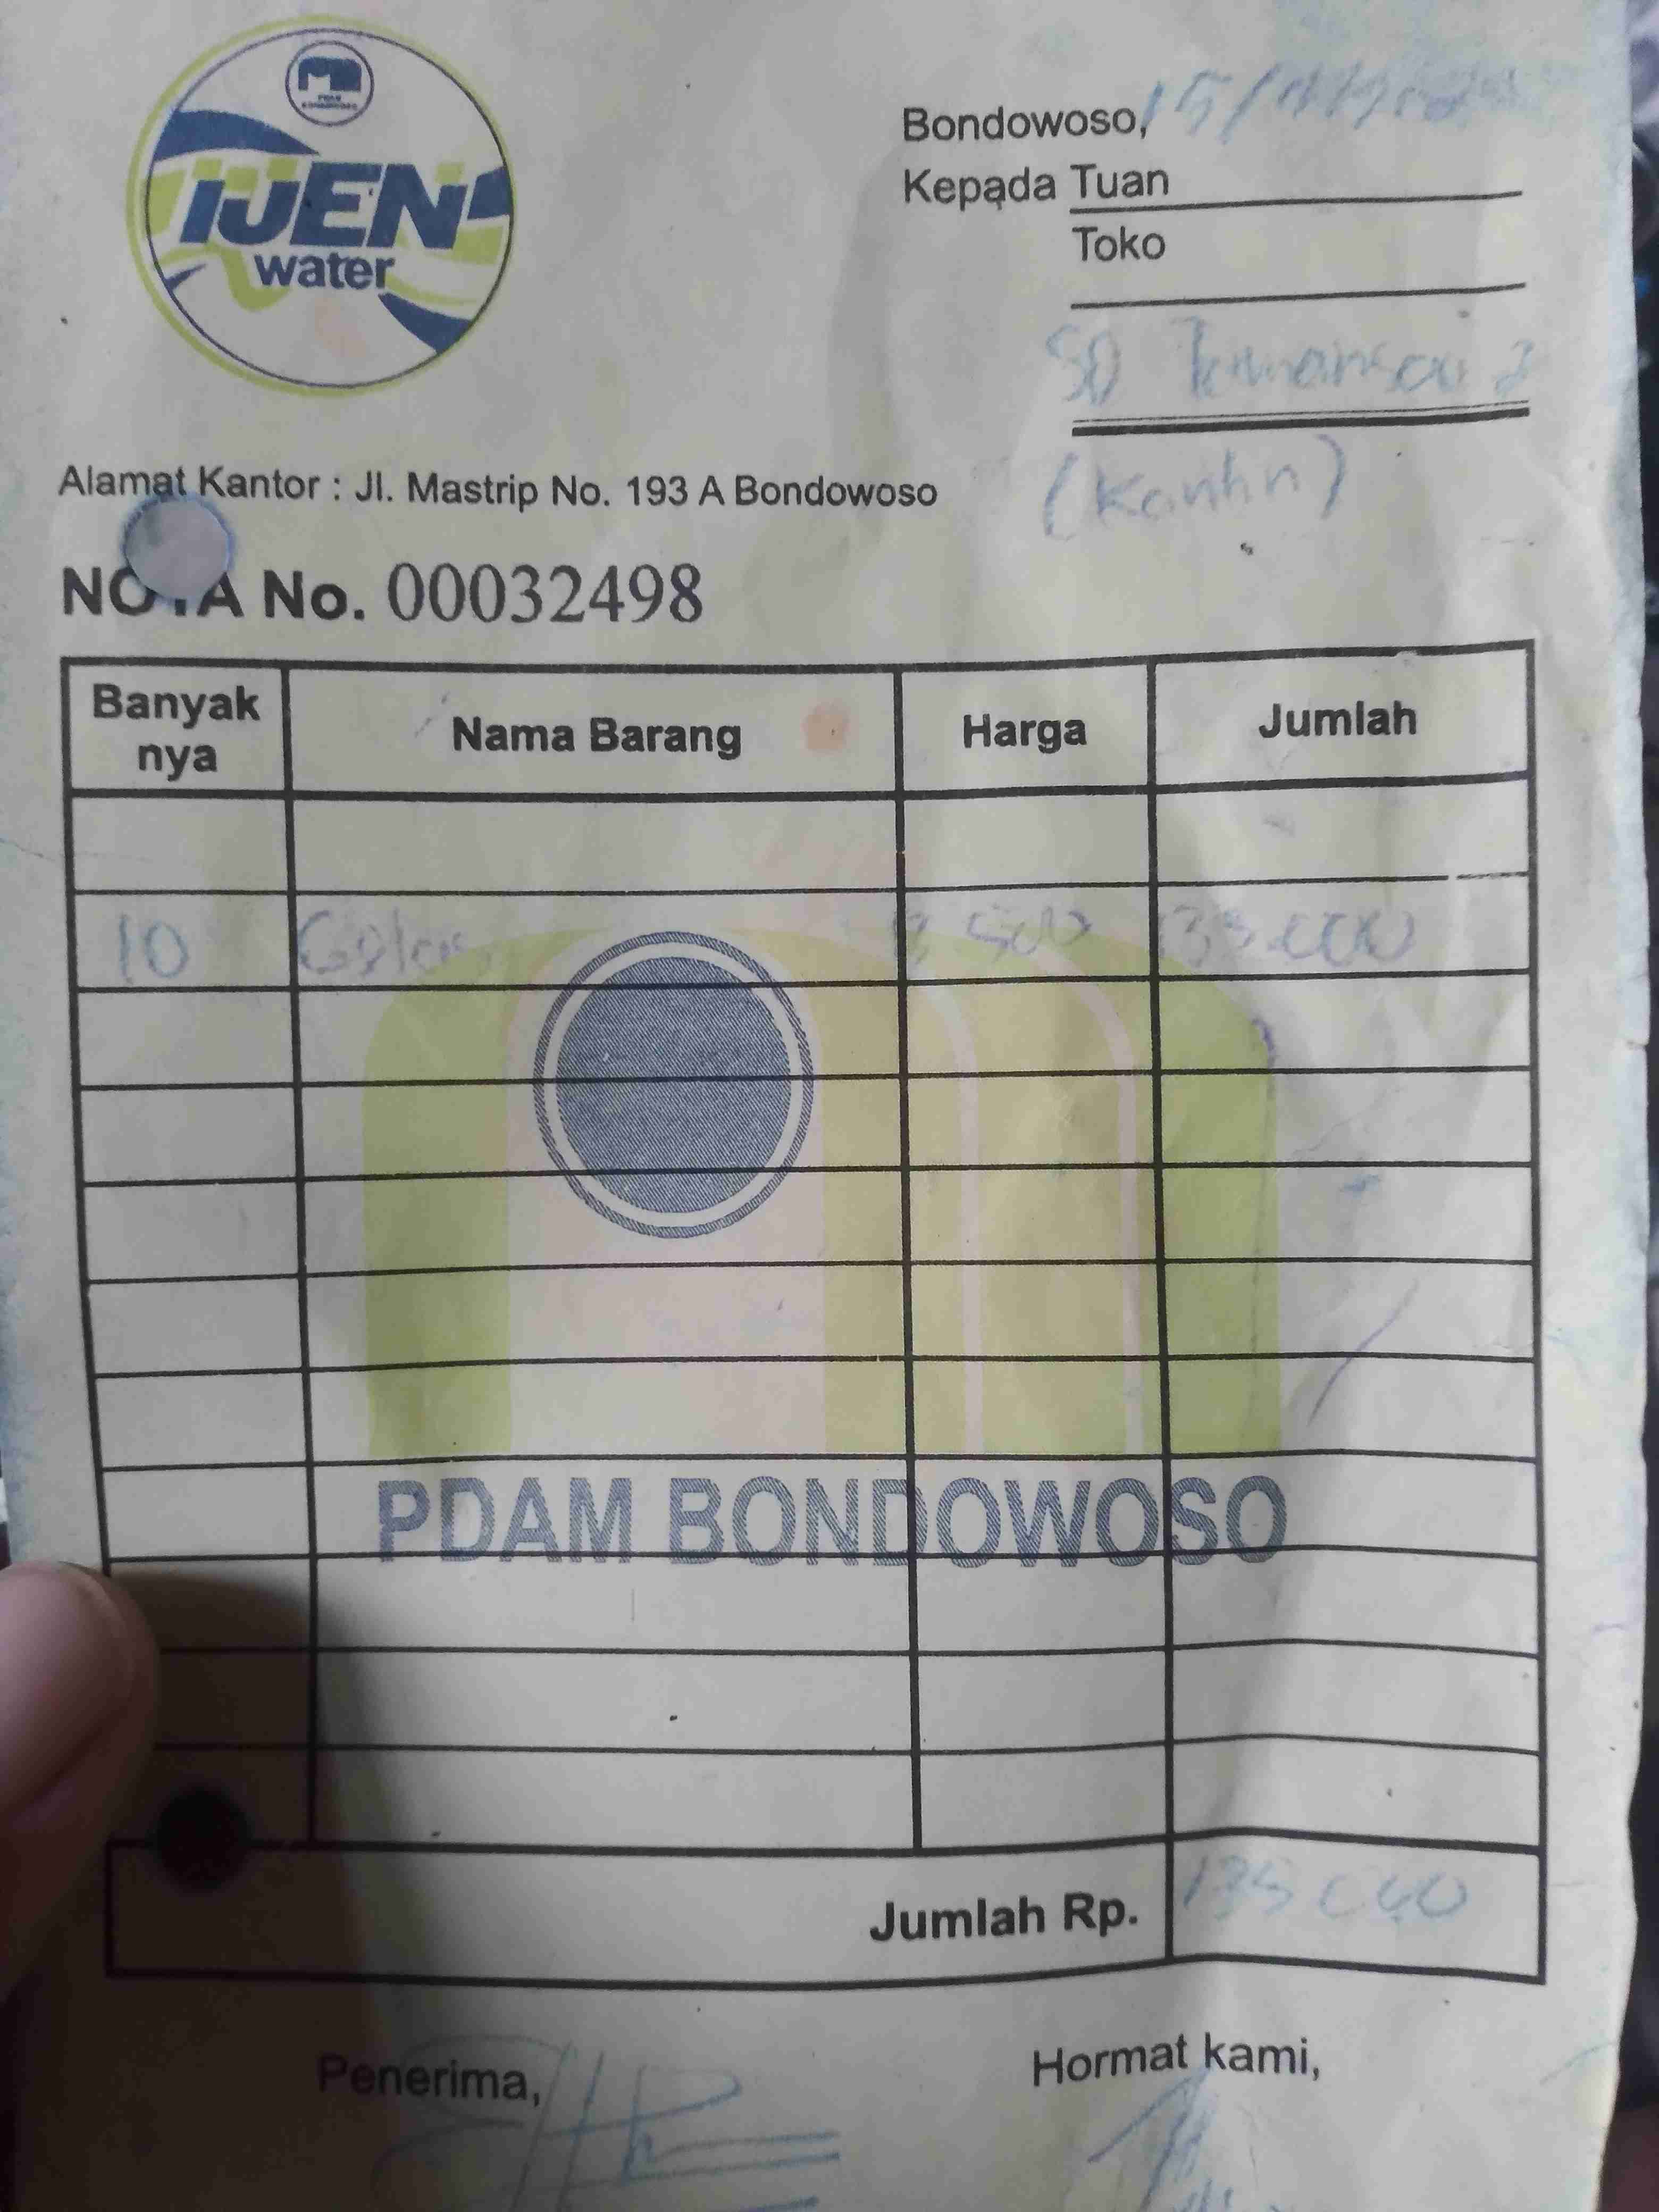 IJEN
water
Bondowoso, 15/
Kepada Tuan
Toko
SD Tamansari 2
(Kantin)
Alamat Kantor : Jl. Mastrip No. 193 A Bondowoso
NOTA No. 00032498
Banyak nya Nama Barang Harga Jumlah
10 Galon 13 500 135.000
PDAM BONDOWOSO
Jumlah Rp. 135 000
Penerima, Hormat kami,